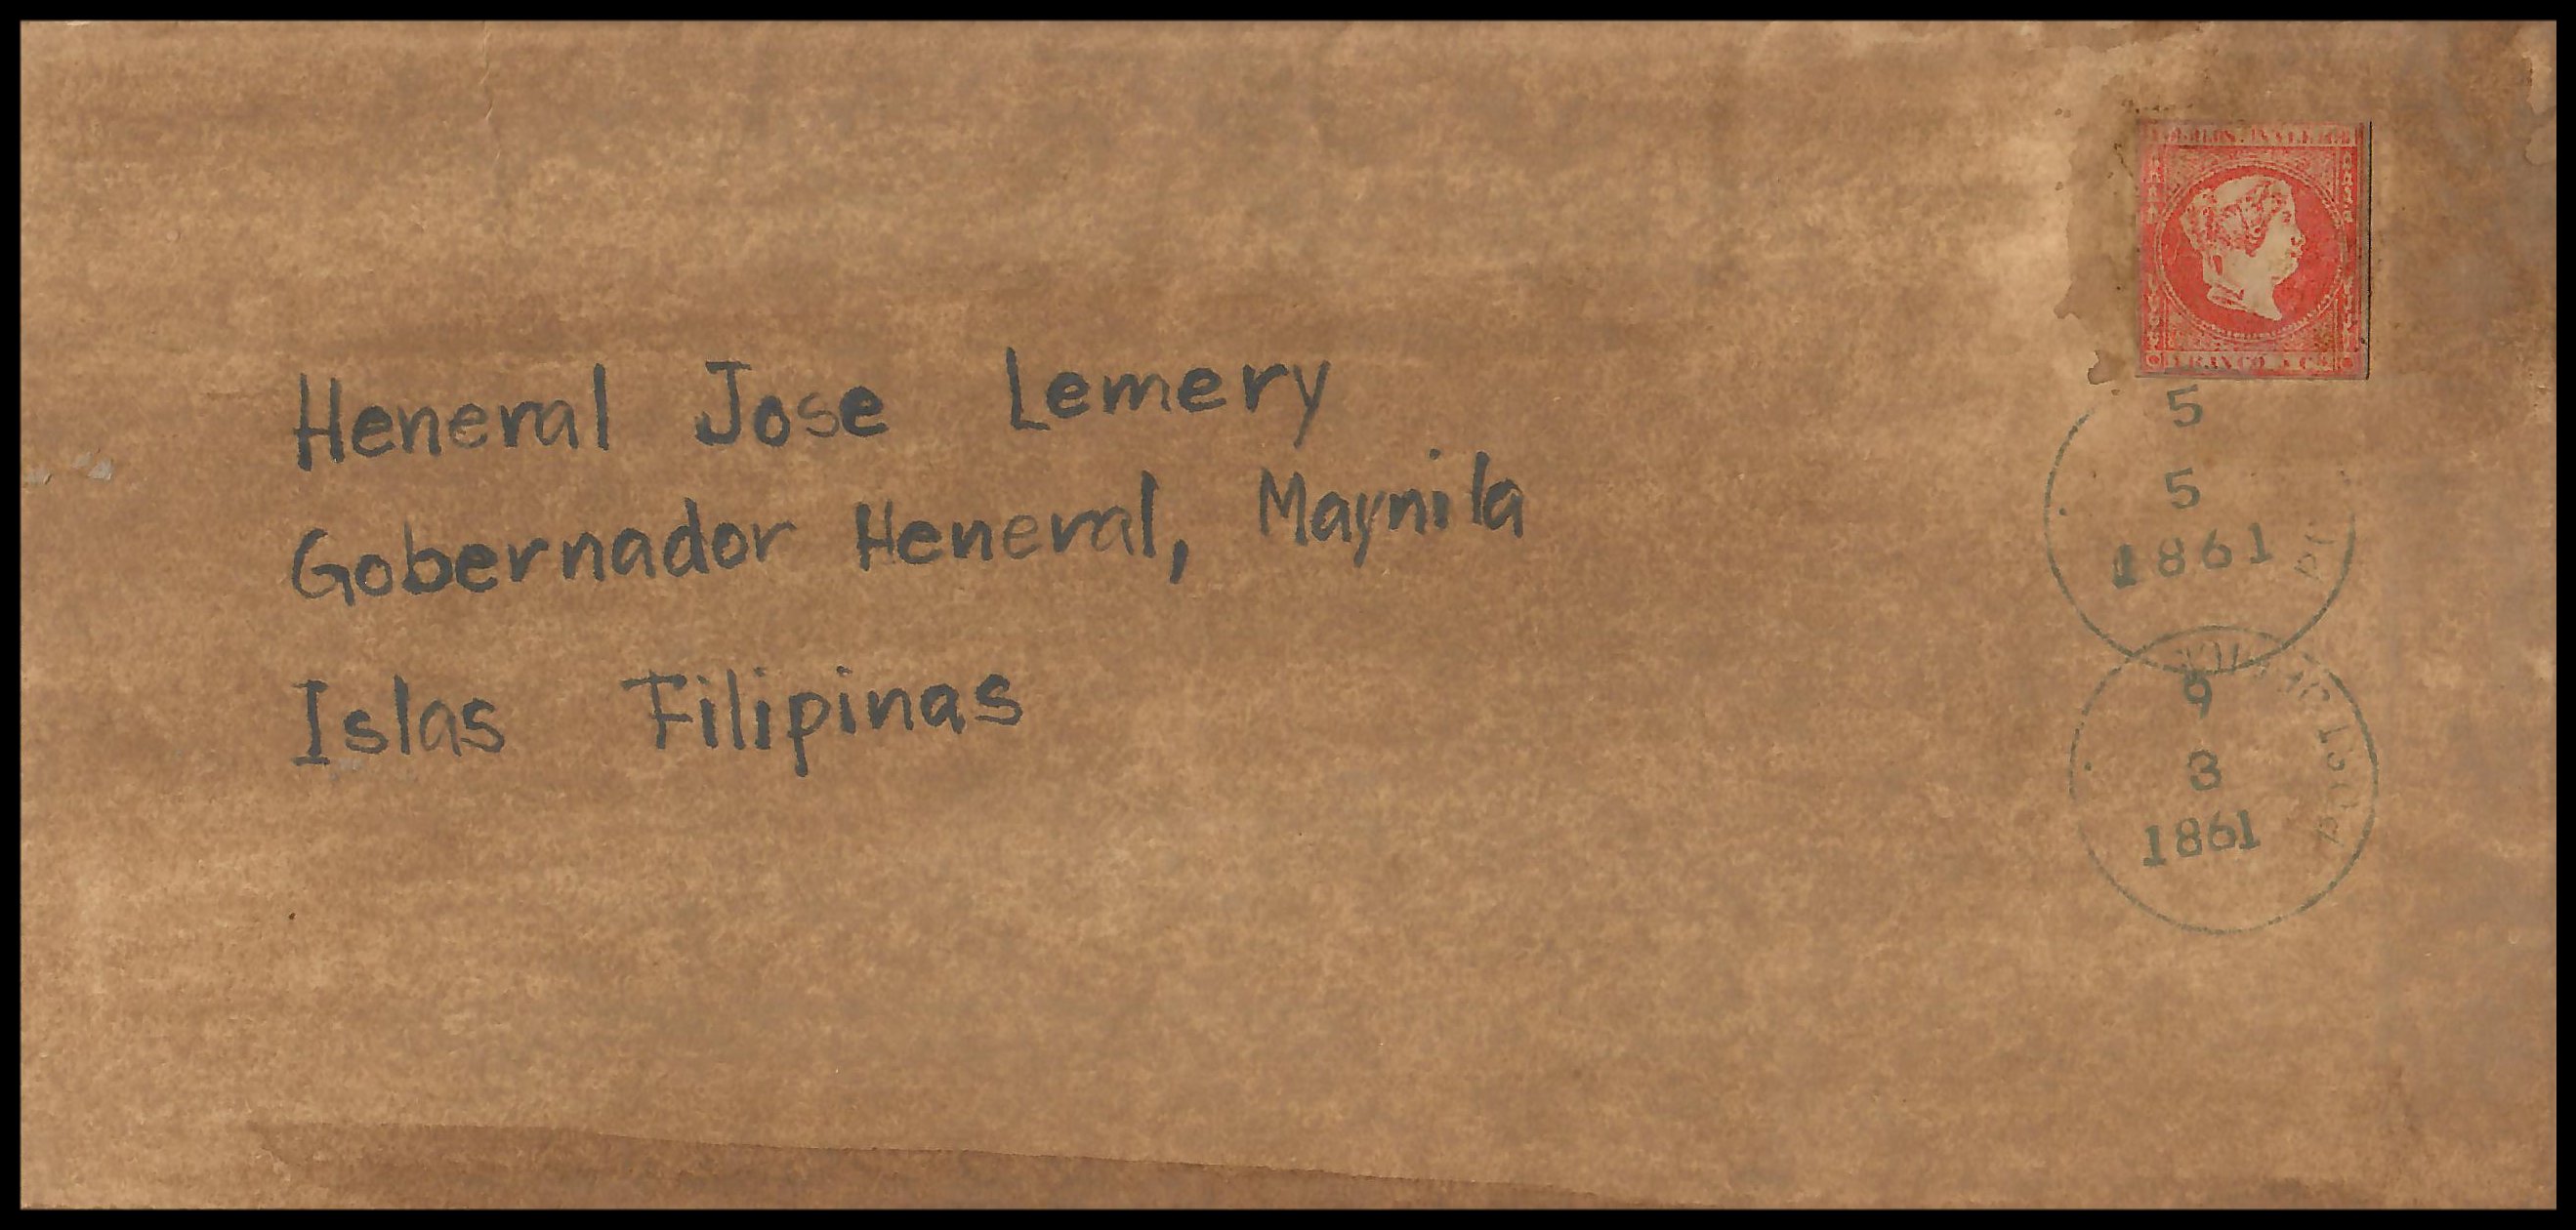 Heneral Jose Lemery
Gobernador Heneral, Maynila
Islas Filipinas
FRANCO
5
5
1861
9
3
1861